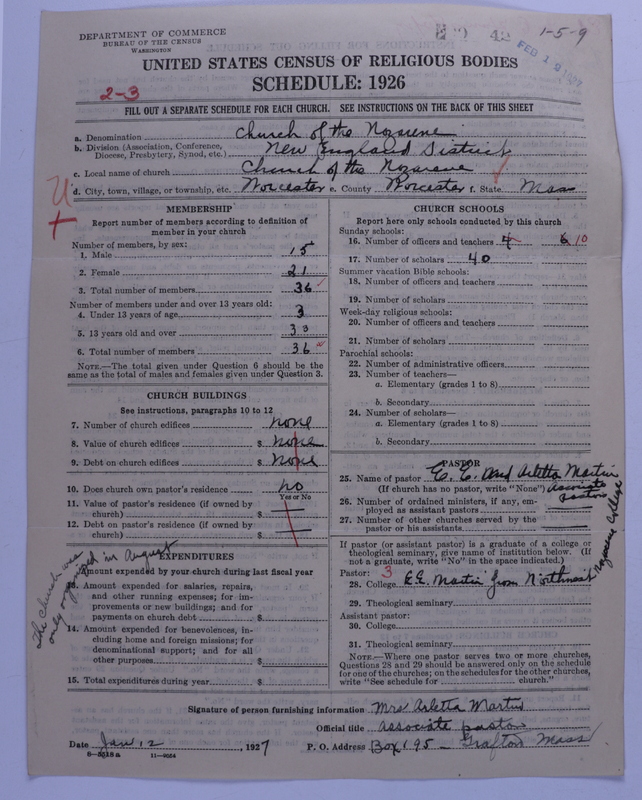 DEPARTMENT OF COMMERCE
BUREAU OF THE CENSUS
WASHINGTON
1-5-9
FEB 1 9 1927
UNITED STATES CENSUS OF RELIGIOUS BODIES
SCHEDULE: 1926
2-3
FILL OUT A SEPARATE SCHEDULE FOR EACH CHURCH. SEE INSTRUCTIONS ON THE BACK OF THIS SHEET
a. Denomination Church of the Nazarene
b. Division (Association, Conference, Diocese, Presbytery, Synod, etc.) New England District
c. Local name of church Church of the Nazarene
d. City, town, village, or township, etc. Worcester e. County Worcester f. State Mass
U
MEMBERSHIP
Report number of members according to definition of member in your church
Number of members, by sex:
1. Male 15
2. Female 21
3. Total number of members 36
Number of members under and over 13 years old:
4. Under 13 years of age 3
5. 13 years old and over 33
6. Total number of members 36
NOTE.—The total given under Question 6 should be the same as the total of males and females given under Question 3.
CHURCH BUILDINGS
See instructions, paragraphs 10 to 12
7. Number of church edifices none
8. Value of church edifices $ none
9. Debt on church edifices $ none
10. Does church own pastor's residence no
Yes or No
11. Value of pastor's residence (if owned by church) $
12. Debt on pastor's residence (if owned by church) $
The church was only organized in August
EXPENDITURES
Amount expended by your church during last fiscal year
13. Amount expended for salaries, repairs, and other running expenses; for improvements or new buildings; and for payments on church debt $
14. Amount expended for benevolences, including home and foreign missions; for denominational support; and for all other purposes $
15. Total expenditures during year $
CHURCH SCHOOLS
Report here only schools conducted by this church
Sunday schools:
16. Number of officers and teachers 4 6 10
17. Number of scholars 40
Summer vacation Bible schools:
18. Number of officers and teachers
19. Number of scholars
Week-day religious schools:
20. Number of officers and teachers
21. Number of scholars
Parochial schools:
22. Number of administrative officers
23. Number of teachers—
a. Elementary (grades 1 to 8)
b. Secondary
24. Number of scholars—
a. Elementary (grades 1 to 8)
b. Secondary
PASTOR
25. Name of pastor E. E. and Arletta Martin
(If church has no pastor, write "None") Associate Pastor
26. Number of ordained ministers, if any, employed as assistant pastors
27. Number of other churches served by the pastor or his assistants
If pastor (or assistant pastor) is a graduate of a college or theological seminary, give name of institution below. (If not a graduate, write "No" in the space indicated.)
Pastor: 3
28. College E.E. Martin from Northwest Nazarene College
29. Theological seminary
Assistant pastor:
30. College
31. Theological seminary
NOTE.—Where one pastor serves two or more churches, Questions 28 and 29 should be answered only on the schedule for one of the churches; on the schedules for the other churches, write "See schedule for church."
Signature of person furnishing information Mrs Arletta Martin
Official title Associate pastor
Date Jan 12, 1927 P. O. Address Box 195 - Grafton Mass
8-5518a 11-9024